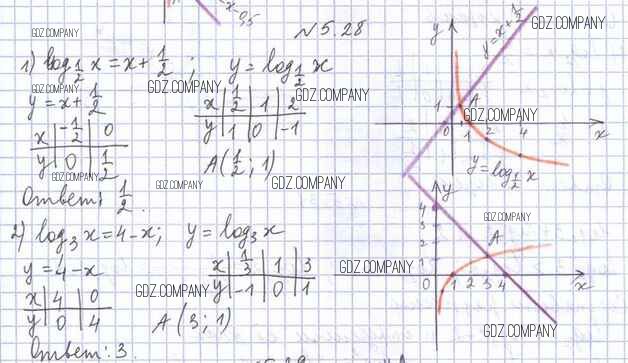 x-0,5
№5.28
1) log_{1/2} x = x + 1/2 ; y = log_{1/2} x
y = x + 1/2
x | -1/2 | 0
y | 0 | 1/2
x | 1/2 | 1 | 2
y | 1 | 0 | -1
A(1/2; 1)
Ответ: 1/2.
y
y = x + 1/2
1
A
0 1 2 4 x
y = log_{1/2} x
2) log_3 x = 4 - x; y = log_3 x
y = 4 - x
x | 4 | 0
y | 0 | 4
x | 1/3 | 1 | 3
y | -1 | 0 | 1
A(3; 1)
Ответ: 3.
y
4
3
2
1
A
0 1 2 3 4 x
GDZ.COMPANY
GDZ.COMPANY
GDZ.COMPANY
GDZ.COMPANY
GDZ.COMPANY
GDZ.COMPANY
GDZ.COMPANY
GDZ.COMPANY
GDZ.COMPANY
GDZ.COMPANY
GDZ.COMPANY
GDZ.COMPANY
GDZ.COMPANY